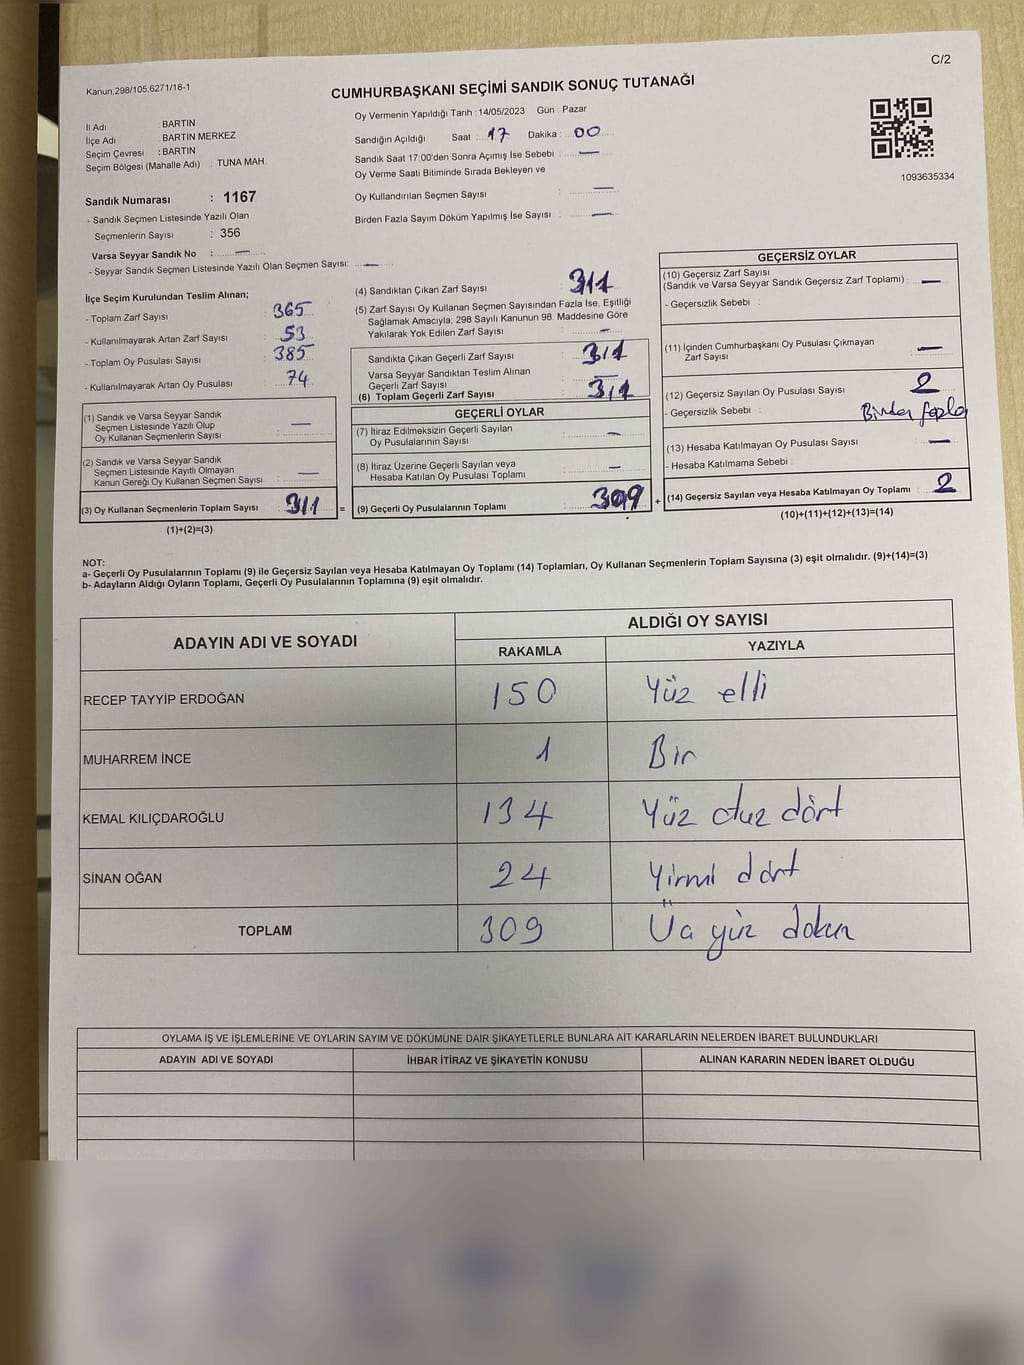 C/2
Kanun;298/105;6271/18-1
CUMHURBAŞKANI SEÇİMİ SANDIK SONUÇ TUTANAĞI
Oy Vermenin Yapıldığı Tarih : 14/05/2023 Gün : Pazar
İl Adı : BARTIN
İlçe Adı : BARTIN MERKEZ
Seçim Çevresi : BARTIN
Seçim Bölgesi (Mahalle Adı) : TUNA MAH.
Sandığın Açıldığı Saat : 17 Dakika : 00
Sandık Saat 17:00'den Sonra Açımış İse Sebebi : —
Oy Verme Saati Bitiminde Sırada Bekleyen ve
Oy Kullandırılan Seçmen Sayısı : —
Birden Fazla Sayım Döküm Yapılmış İse Sayısı : —
1093635334
Sandık Numarası : 1167
- Sandık Seçmen Listesinde Yazılı Olan
Seçmenlerin Sayısı : 356
Varsa Seyyar Sandık No : —
- Seyyar Sandık Seçmen Listesinde Yazılı Olan Seçmen Sayısı: —
İlçe Seçim Kurulundan Teslim Alınan;
- Toplam Zarf Sayısı : 365
- Kullanılmayarak Artan Zarf Sayısı : 53
- Toplam Oy Pusulası Sayısı : 385
- Kullanılmayarak Artan Oy Pusulası : 74
(1) Sandık ve Varsa Seyyar Sandık
Seçmen Listesinde Yazılı Olup
Oy Kullanan Seçmenlerin Sayısı : —
(2) Sandık ve Varsa Seyyar Sandık
Seçmen Listesinde Kayıtlı Olmayan
Kanun Gereği Oy Kullanan Seçmen Sayısı : —
(3) Oy Kullanan Seçmenlerin Toplam Sayısı : 311 =
(1)+(2)=(3)
(4) Sandıktan Çıkan Zarf Sayısı : 311
(5) Zarf Sayısı Oy Kullanan Seçmen Sayısından Fazla İse, Eşitliği
Sağlamak Amacıyla, 298 Sayılı Kanunun 98. Maddesine Göre
Yakılarak Yok Edilen Zarf Sayısı : —
Sandıkta Çıkan Geçerli Zarf Sayısı : 311
Varsa Seyyar Sandıktan Teslim Alınan
Geçerli Zarf Sayısı : —
(6) Toplam Geçerli Zarf Sayısı : 311
GEÇERLİ OYLAR
(7) İtiraz Edilmeksizin Geçerli Sayılan
Oy Pusulalarının Sayısı : —
(8) İtiraz Üzerine Geçerli Sayılan veya
Hesaba Katılan Oy Pusulası Toplamı : —
(9) Geçerli Oy Pusulalarının Toplamı : 309 +
GEÇERSİZ OYLAR
(10) Geçersiz Zarf Sayısı
(Sandık ve Varsa Seyyar Sandık Geçersiz Zarf Toplamı) : —
- Geçersizlik Sebebi :
(11) İçinden Cumhurbaşkanı Oy Pusulası Çıkmayan
Zarf Sayısı : —
(12) Geçersiz Sayılan Oy Pusulası Sayısı : 2
- Geçersizlik Sebebi : Birden fazla
(13) Hesaba Katılmayan Oy Pusulası Sayısı : —
- Hesaba Katılmama Sebebi :
(14) Geçersiz Sayılan veya Hesaba Katılmayan Oy Toplamı : 2
(10)+(11)+(12)+(13)=(14)
NOT:
a- Geçerli Oy Pusulalarının Toplamı (9) ile Geçersiz Sayılan veya Hesaba Katılmayan Oy Toplamı (14) Toplamları, Oy Kullanan Seçmenlerin Toplam Sayısına (3) eşit olmalıdır. (9)+(14)=(3)
b- Adayların Aldığı Oyların Toplamı, Geçerli Oy Pusulalarının Toplamına (9) eşit olmalıdır.
ADAYIN ADI VE SOYADI ALDIĞI OY SAYISI
RAKAMLA YAZIYLA
RECEP TAYYİP ERDOĞAN 150 Yüz elli
MUHARREM İNCE 1 Bir
KEMAL KILIÇDAROĞLU 134 Yüz otuz dört
SİNAN OĞAN 24 Yirmi dört
TOPLAM 309 Üç yüz dokuz
OYLAMA İŞ VE İŞLEMLERİNE VE OYLARIN SAYIM VE DÖKÜMÜNE DAİR ŞİKAYETLERLE BUNLARA AİT KARARLARIN NELERDEN İBARET BULUNDUKLARI
ADAYIN ADI VE SOYADI İHBAR İTİRAZ VE ŞİKAYETİN KONUSU ALINAN KARARIN NEDEN İBARET OLDUĞU